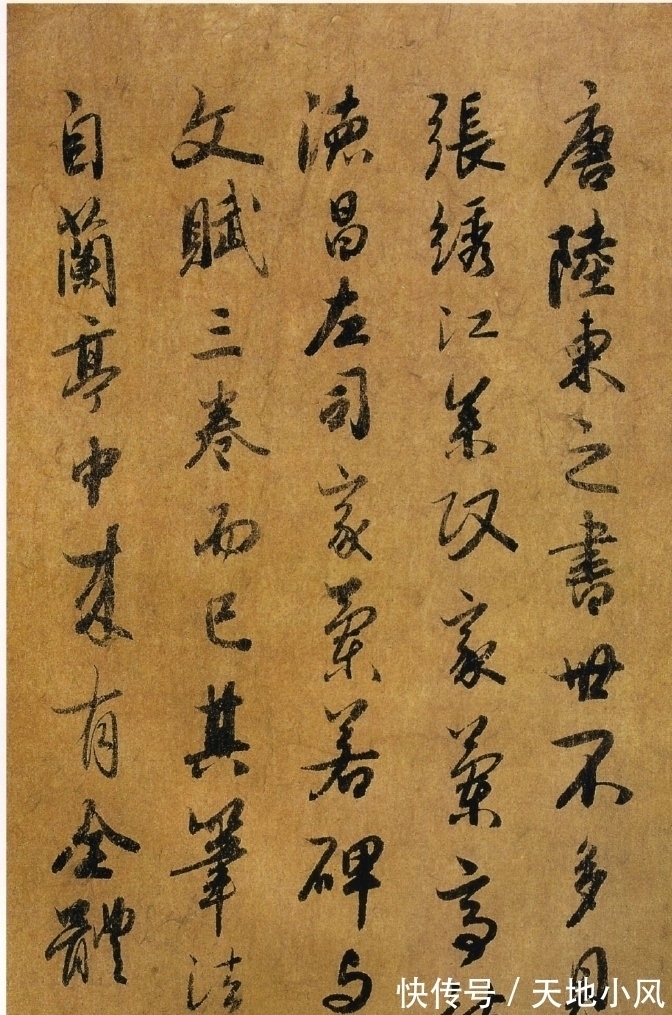 唐陸柬之書世不多見
張綉江參政家蘭亭
德昌左司家蘭若碑与
文賦三卷而已其筆法
自蘭亭中来有全體
快传号/天地小风